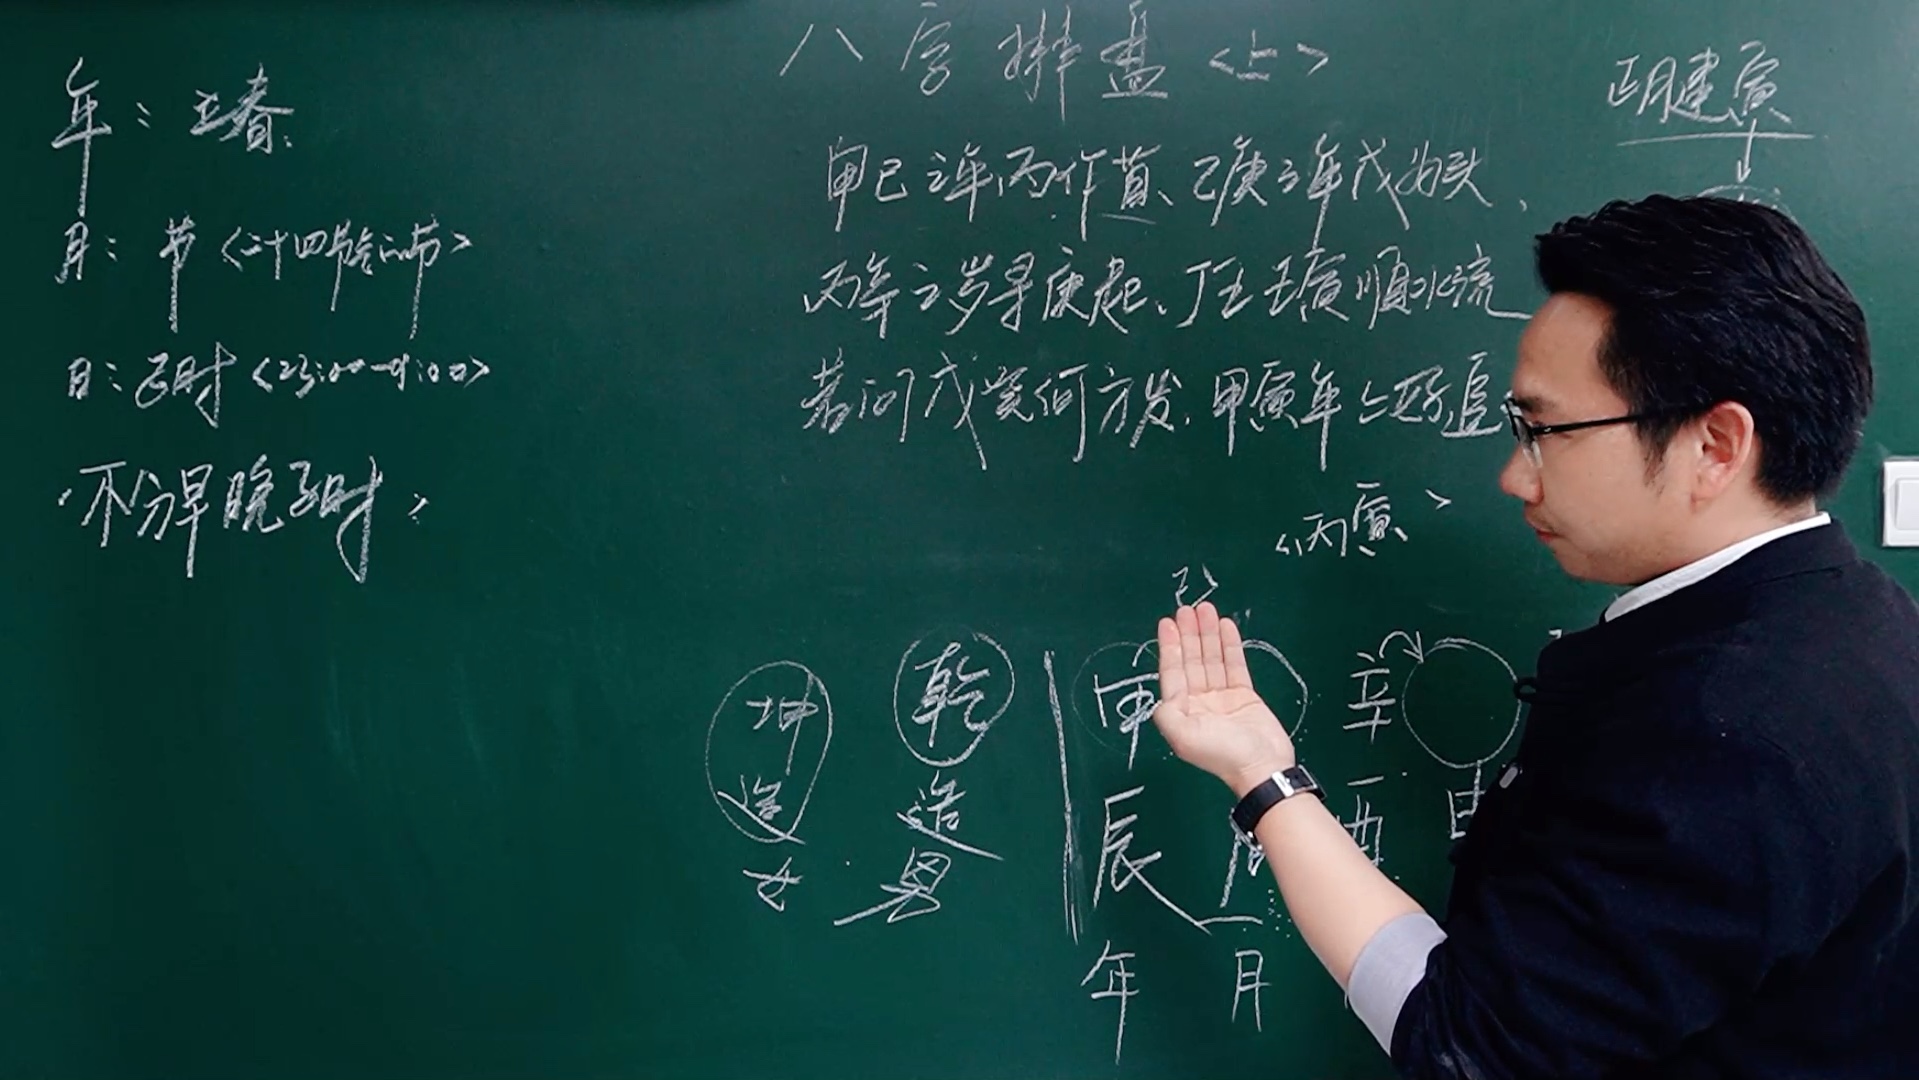 八字排盘<上>
正月建寅
年：立春
月：节<二十四节气的节>
日：子时<23:00-1:00>
·不分早晚子时；
甲己之年丙作首、乙庚之年戊为头、
丙辛之岁寻庚起、丁壬壬寅顺水流
若问戊癸何方发、甲寅年上好追
<丙寅>
己
坤造 女
乾造 男
甲 辛
辰 酉 申
年 月